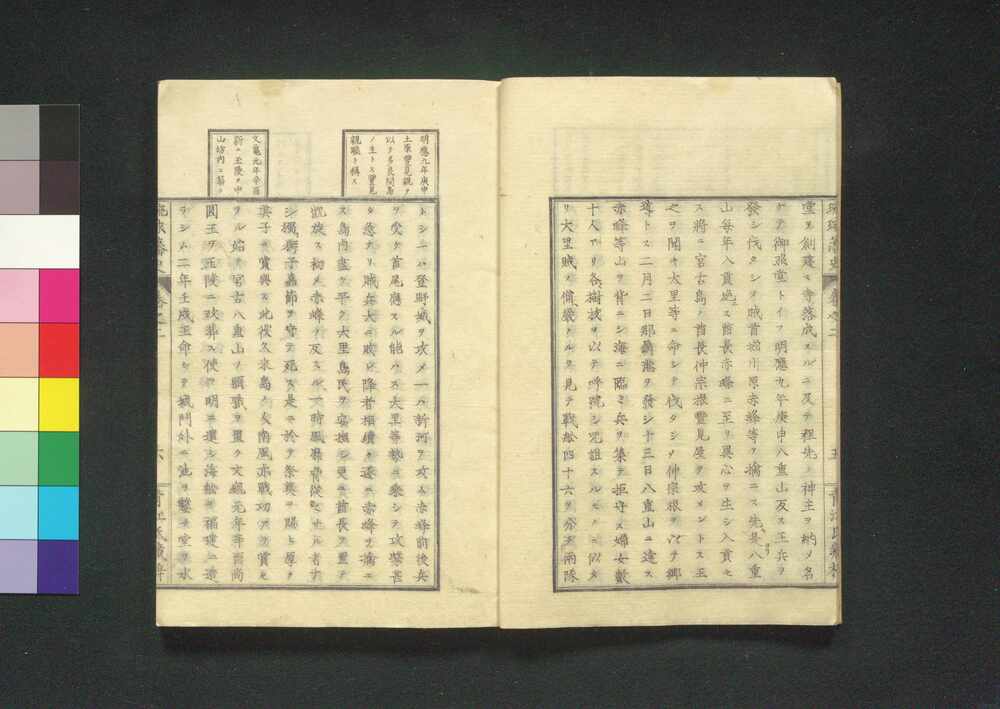 堂ヲ創建ス寺落成スルニ及テ程先ノ神主ヲ納メ名
ケテ御照堂トイフ明應九年庚申八重山反ス王兵ヲ
發シ伐タシメ賊首堀川原赤峰等ヲ擒ニス先是八重
山每年入貢絶ス酋長赤峰ニ至リ異心ヲ生シ入貢セ
ス將ニ宮古島ノ酋長仲宗根豐見屋ヲ攻メントス王
之ヲ聞キ大里等ニ命シテ伐タシメ仲宗根ヲ以テ鄉
導トス二月二日那霸港ヲ發シ十三日八重山ニ達ス
赤峰等山ヲ背ニシ海ニ臨ミ兵ヲ集テ拒守ス婦女數
十人アリ各樹枝ヲ以テ呼號シ咒詛スルモノニ似タ
リ大里賊ノ備嚴ナルヲ見テ戰船四十六ヲ分テ兩隊
琉球藩史 卷之二 五
明應九年庚申
土原豐見親ヲ
以テ多良間島
ノ主トス豐見
親職ト稱ス
文龜元年辛酉
新ニ玉陵ヲ中
山坊内ニ築ク
トシ一ハ登野城ヲ攻メ一ハ新河ヲ攻ム赤峰前後兵
ヲ受ケ首尾應スル能ハス大里等勢ニ乘シテ攻擊甚
タ急ナリ賊兵大ニ敗レ降者相續ク遂ニ赤峰ヲ擒ニ
ス島内盡ク平ク大里島民ヲ安撫シ更ニ酋長ヲ置テ
凱旋ス初メ赤峰ノ反スル一時風靡脅從セサル者ナ
シ獨リ
子義節ヲ守テ死ス是ニ於テ祭奠ヲ賜ト厚ク
其子ニ賞與ス此役久米島ノ人南風亦戰功アリ賞セ
ラル始テ宮古八重山ノ頭職ヲ置ク文龜元年辛酉尚
圓王ヲ玉陵ニ改葬ス使ヲ明ニ遣シ海船ヲ福建ニ造
ラシム二年壬戌王命シテ城門外ニ池ヲ鑿テ堂ヲ水
琉球藩史 卷之二 六